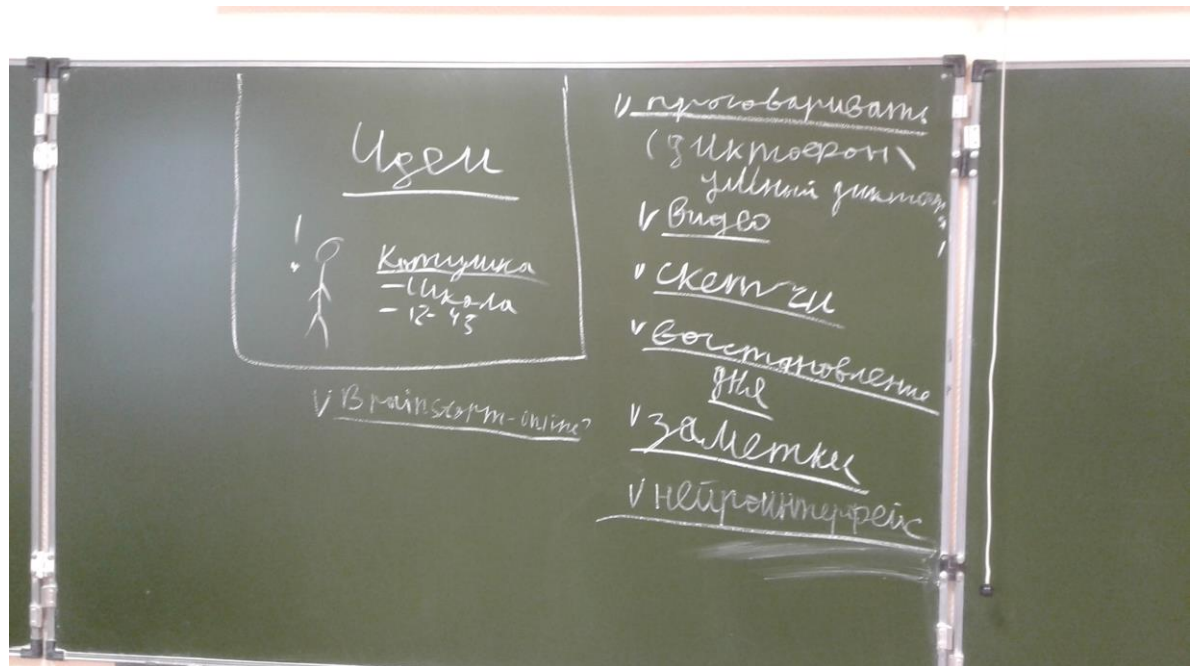 Идеи
!
Катушка
- Школа
- 12-43
v Brainstorm-online?
v проговаривать
(диктофон\
умный диктоф.
v Видео
v скетчи
v восстановление
дня
v заметки
v нейроинтерфейс